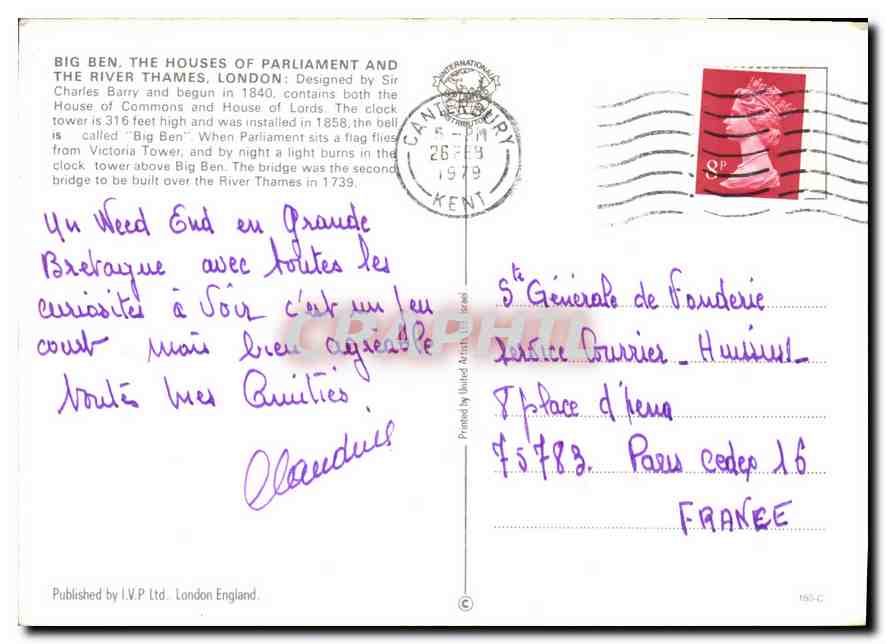 BIG BEN, THE HOUSES OF PARLIAMENT AND
THE RIVER THAMES, LONDON: Designed by Sir
Charles Barry and begun in 1840, contains both the
House of Commons and House of Lords. The clock
tower is 316 feet high and was installed in 1858, the bell
is called "Big Ben". When Parliament sits a flag flies
from Victoria Tower, and by night a light burns in the
clock tower above Big Ben. The bridge was the second
bridge to be built over the River Thames in 1739.
INTERNATIONAL
CANTERBURY
5 - PM
26 FEB
1979
KENT
8P
Un Weed End en Grande
Bretagne avec toutes les
curiosités à voir c'est un peu
court mais bien agréable
Toutes mes Amitiés.
Claudine
Printed by United Artists Ltd Israel
CPAPHIL
Sté Générale de Fonderie
Service Courrier - Huissiers
8 place d'Iena
75783. Paris cedex 16
FRANCE
Published by I.V.P Ltd. London England.
©
160-C